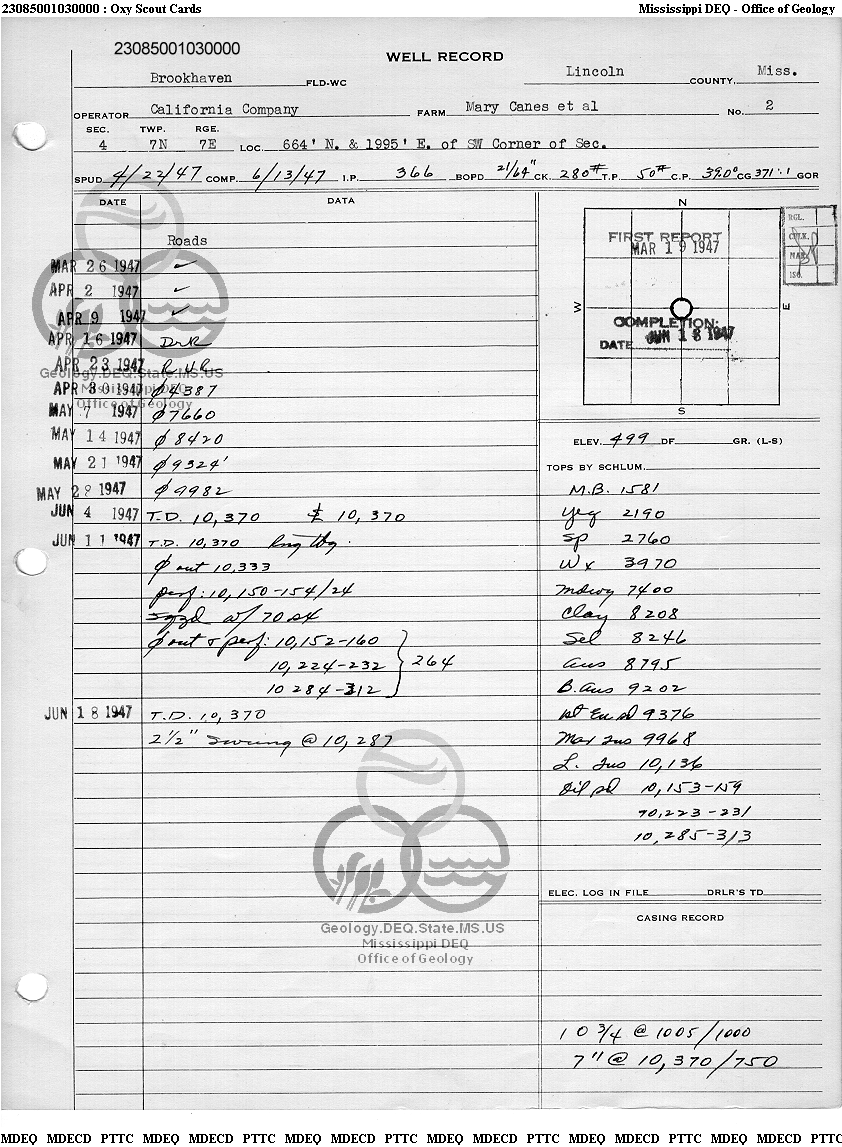 23085001030000 : Oxy Scout Cards Mississippi DEQ - Office of Geology
23085001030000
WELL RECORD
Brookhaven FLD-WC Lincoln COUNTY, Miss.
OPERATOR California Company FARM Mary Canes et al No. 2
SEC. TWP. RGE.
4 7N 7E LOC. 664' N. & 1995' E. of SW Corner of Sec.
SPUD 4/22/47 COMP. 6/13/47 I.P. 366 BOPD 21/64" CK. 280# T.P. 50# C.P. 39.0° CG 371:1 GOR
DATE DATA
Roads
MAR 26 1947 ✓
APR 2 1947 ✓
APR 9 1947 ✓
APR 16 1947 DrR
APR 23 1947 RUR
APR 30 1947 ∅4387
MAY 7 1947 ∅7660
MAY 14 1947 ∅8420
MAY 21 1947 ∅9324'
MAY 28 1947 ∅9982
JUN 4 1947 T.D. 10,370 10,370
JUN 11 1947 T.D. 10,370 Rng tbg.
∅ out 10,333
perf: 10,150-154/24
sqzd w/ 70 sx
∅ out & perf: 10,152-160
10,224-232 264
10 284-312
JUN 18 1947 T.D. 10,370
2½" swung @ 10,287
N
FIRST REPORT
MAR 19 1947
RGL.
W E
COMPLETION:
DATE JUN 18 1947
S
ELEV. 499 DF GR. (L-S)
TOPS BY SCHLUM.
M.B. 1581
Yeg 2190
Sp 2760
Wx 3970
Mdwy 7400
Clay 8208
Sel 8246
Aus 8795
B. Aus 9202
1st Eu sd 9376
Mar Tus 9968
L. Tus 10,136
Oil sd 10,153-159
10,223-231
10,285-313
ELEC. LOG IN FILE DRLR'S TD
CASING RECORD
10 ¾ @ 1005/1000
7" @ 10,370/750
Geology.DEQ.State.MS.US
Mississippi DEQ
Office of Geology
Geology.DEQ.State.MS.US
Mississippi DEQ
Office of Geology
MDEQ MDECD PTTC MDEQ MDECD PTTC MDEQ MDECD PTTC MDEQ MDECD PTTC MDEQ MDECD PTTC MDEQ MDECD PTTC